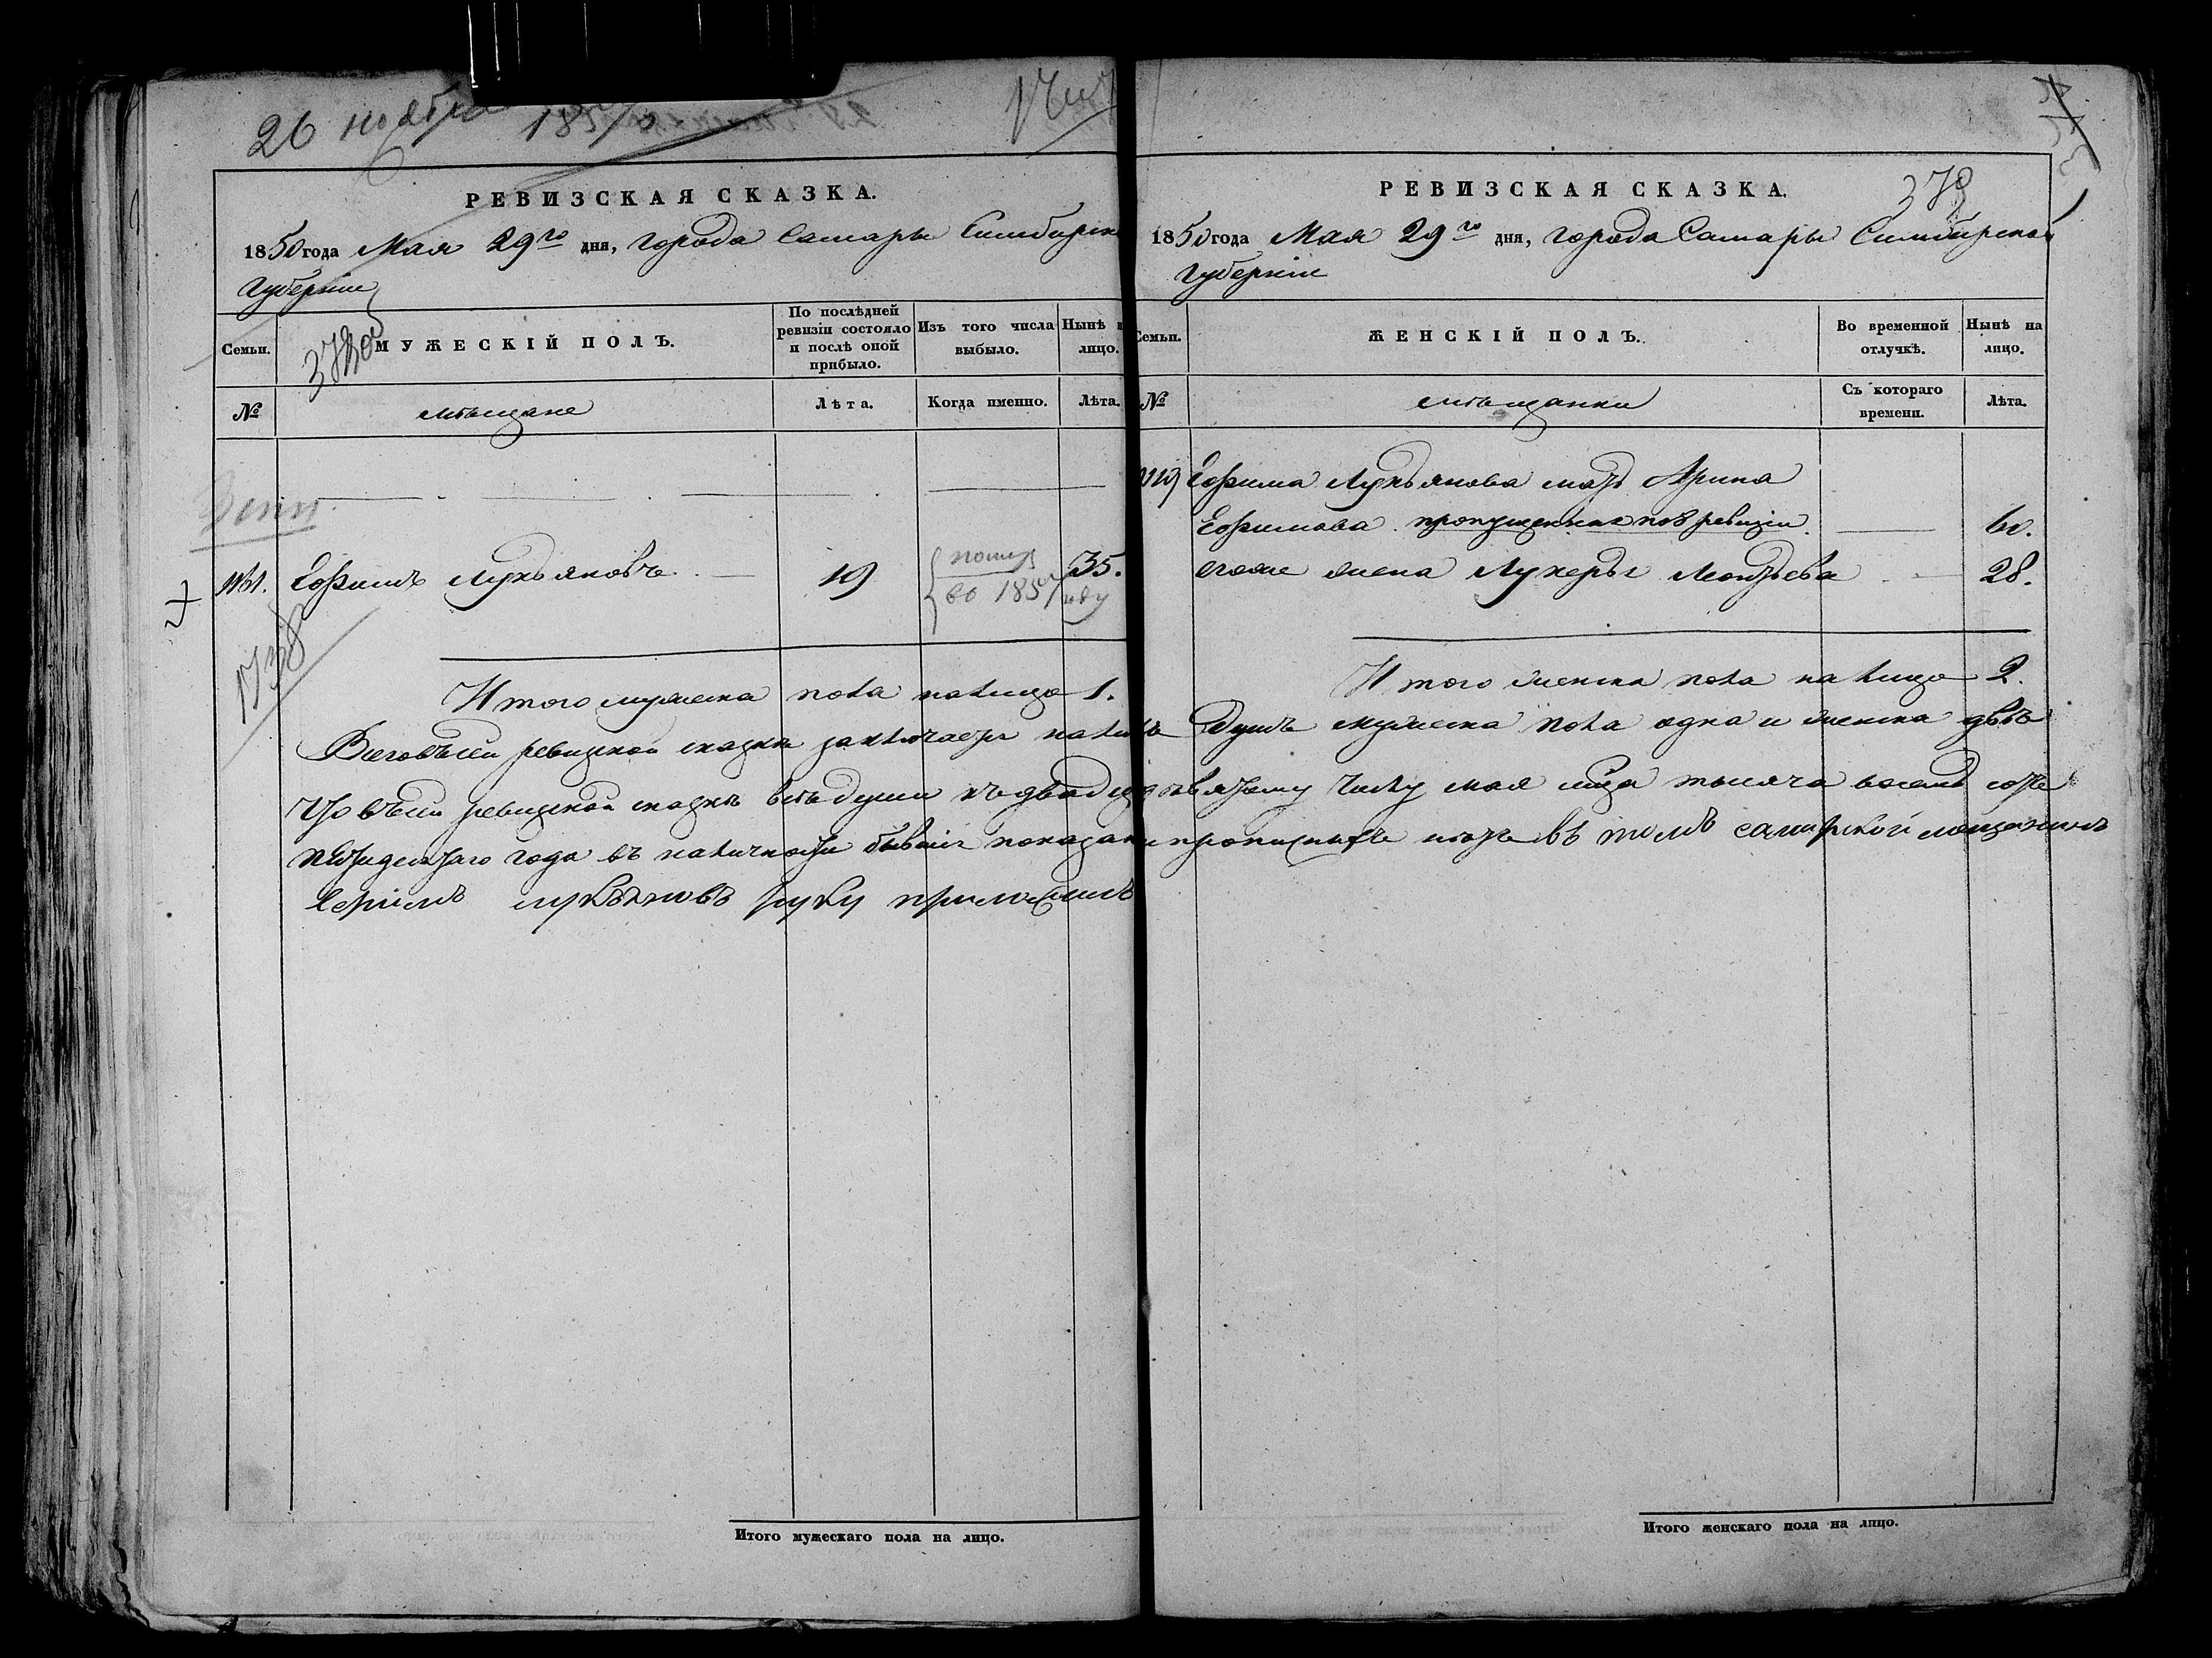 26 ноября 1857/8
РЕВИЗСКАЯ СКАЗКА.
1850 года Мая 29го дня, города Самары Симбирск
Губернiи
Семьи.
МУЖЕСКIЙ ПОЛЪ.
По послѣдней ревизiи состояло и послѣ оной прибыло.
Изъ того числа выбыло.
Нынѣ н лицо.
№
мѣщане
Лѣта.
Когда именно.
Лѣта.
Ефимъ Лукьяновъ 19 35.
во 1857 году
1738
Итого мужеска пола налицо 1.
Итого мужескаго пола на лицо.
378
РЕВИЗСКАЯ СКАЗКА.
1850 года Мая 29го дня, города Самары Симбирской
Губернiи
Семьи.
ЖЕНСКIЙ ПОЛЪ.
Во временной отлучкѣ.
Нынѣ на лицо.
№
мѣщанки
Съ котораго времени.
Лѣта.
Ефима Лукьянова мать Арина
Ефимова пропущенная по 8 ревизiи 60.
егоже жена Лукерья Леонтьева 28.
Итого женска пола на лицо 2.
Всего въ сей ревизской сказкѣ заключается налицо Душъ мужеска пола одна и женска двѣ
Что въ сей ревизской сказкѣ всѣ души къ двадцать девятому числу мая мца тысяча восемь сотъ
пятидесятаго года въ наличности бывшiе показаны и прописныхъ нѣтъ въ томъ самарской мещанинъ
Ефимъ лукьяновъ руку приложилъ
Итого женскаго пола на лицо.